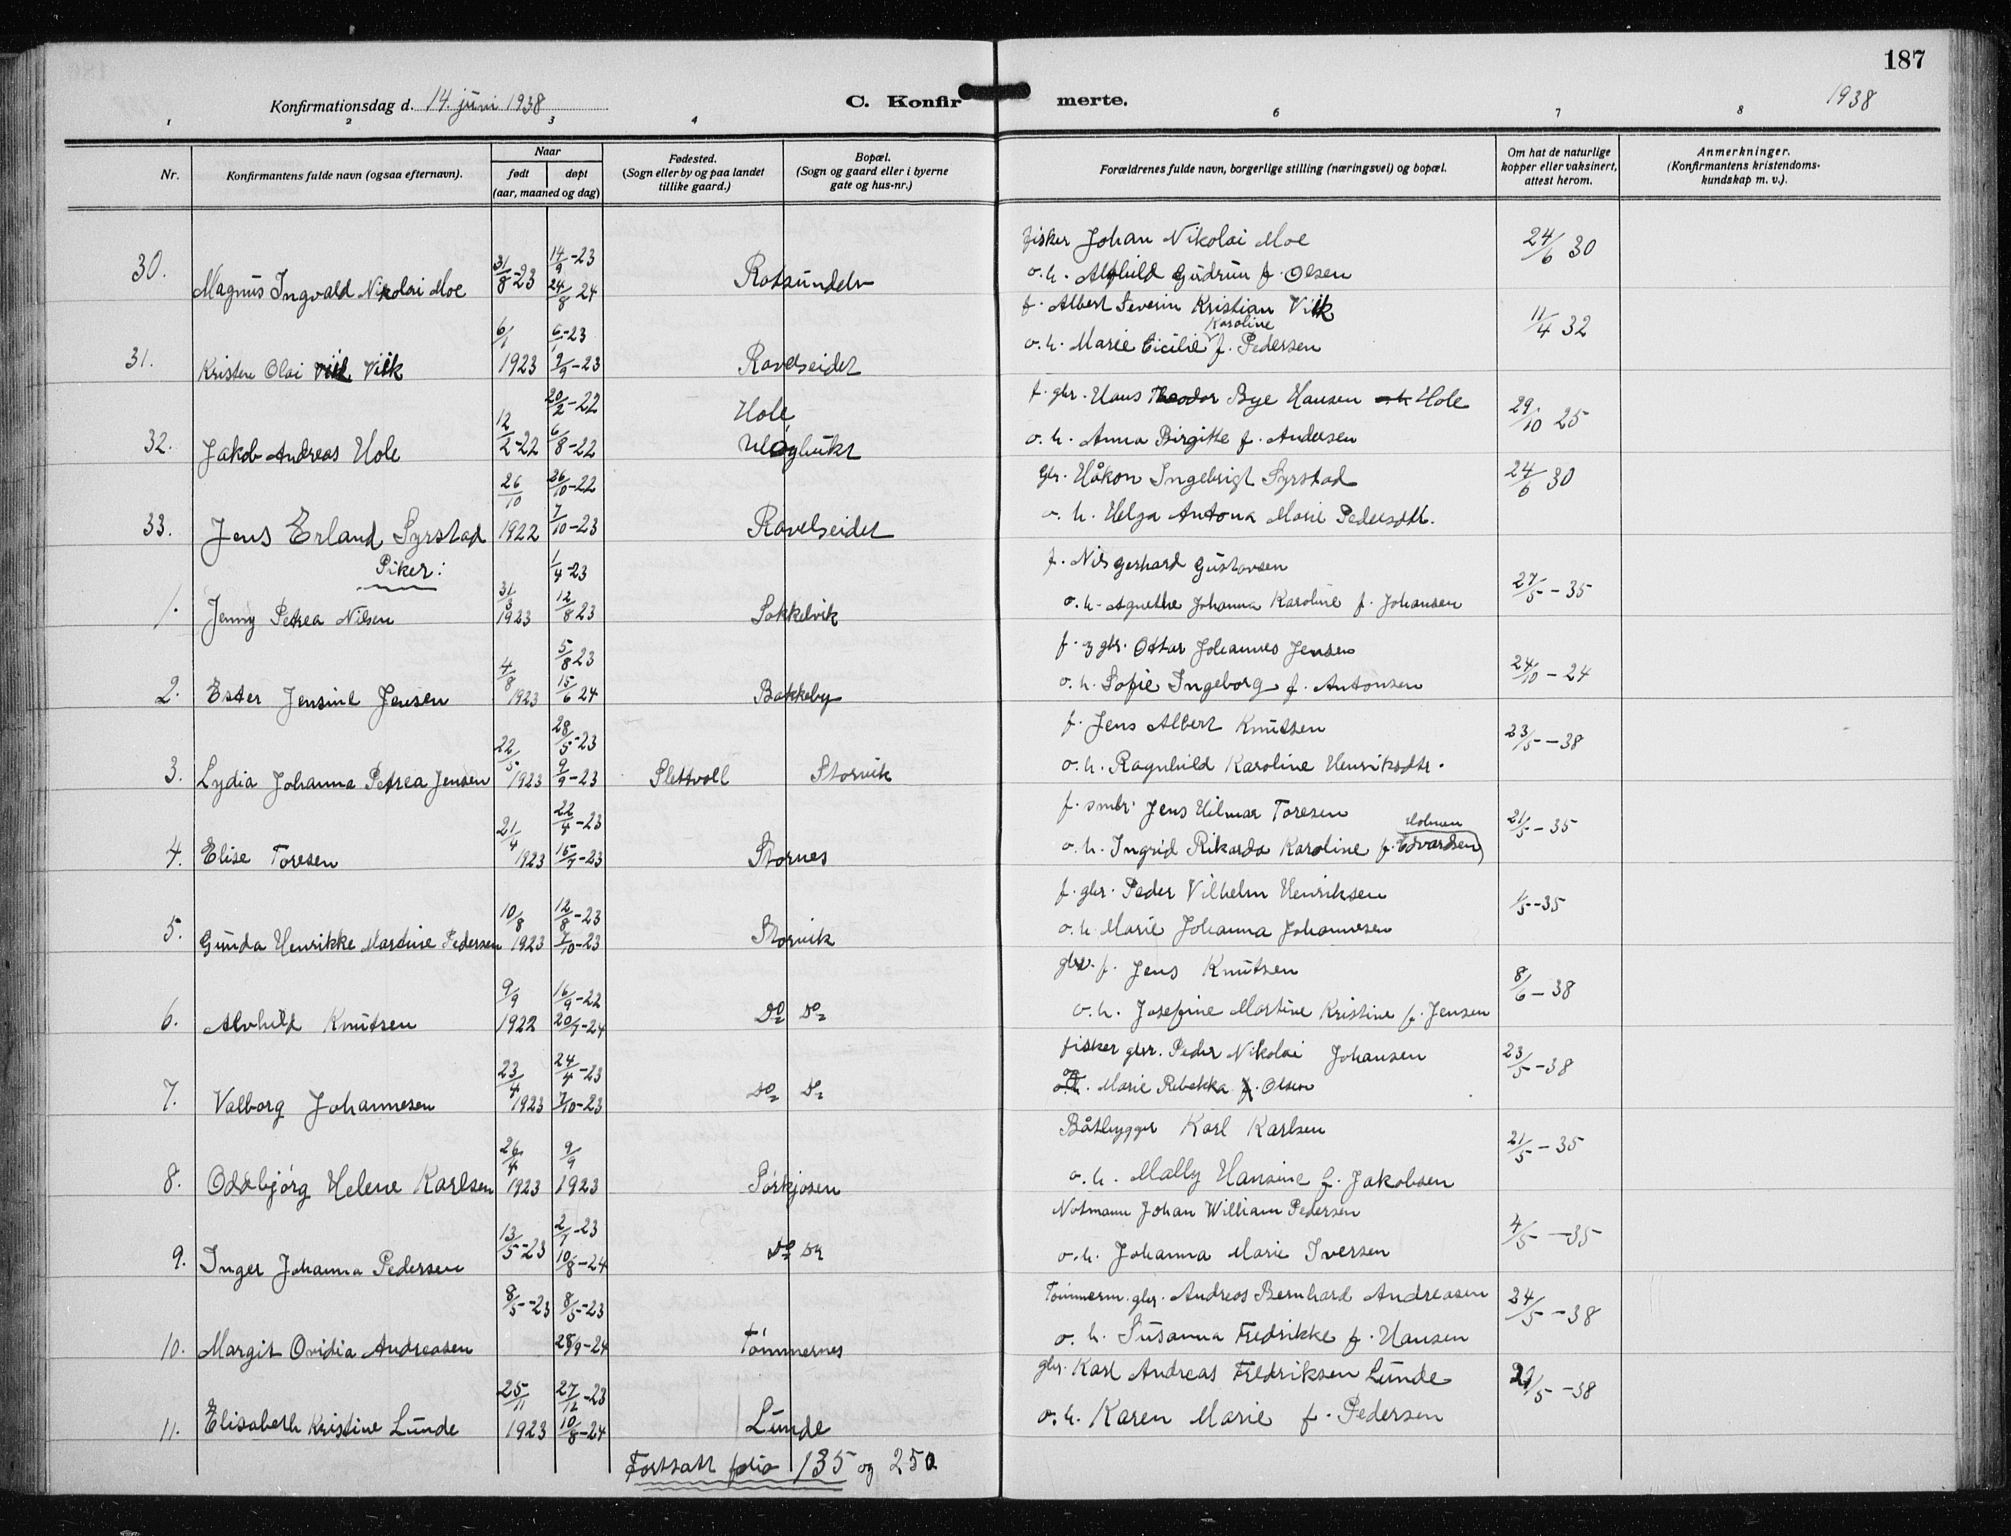 187
Konfirmationsdag d. 14. juni 1938
C. Konfirmerte.
1938
1 2 3 4 6 7 8
Nr.
Konfirmantens fulde navn (ogsaa efternavn).
Naar
født døpt
(aar, maaned og dag)
Fødested.
(Sogn eller by og paa landet
tillike gaard.)
Bopæl.
(Sogn og gaard eller i byerne
gate og hus-nr.)
Forældrenes fulde navn, borgerlige stilling (næringsvei) og bopæl.
Om hat de naturlige
kopper eller vaksinert,
attest herom.
Anmerkninger.
(Konfirmantens kristendoms-
kundskap m. v.).
30. Magnus Ingvald Nikolai Moe 31/8-23 14/9-23 24/8 24 Rotsundelv
fisker Johan Nikolai Moe 24/6 30
o. h. Alfhild Gudrun f. Olsen
31. Kristen Olai Viik 6/1 1923 6/1-23 9/9-23 Ravelseidet
f. Albert Severin Kristian Viik 11/4 32
o. h. Marie Cicilie Karoline f. Pedersen
32. Jakob Andreas Hole 12/2-22 20/2-22 6/8-22 Hole, Uløybukt
f. gbr. Hans Theodor Bye Hansen Hole 29/10 25
o. h. Anna Birgitte f. Andersen
33. Jens Erland Syrstad 26/10 1922 26/10-22 7/10-23 Ravelseidet
Gbr. Håkon Ingebrigt Syrstad 24/6 30
o. h. Helga Antona Marie Pedersdtr.
Piker:
1. Jenny Petrea Nilsen 31/3 1923 1/4-23 12/8 23 Sokkelvik
f. Nils Gerhard Gustavsen 27/5-35
o. h. Agnethe Johanna Karoline f. Johansen
2. Ester Jensine Jensen 4/8 1923 5/8 23 15/6 24 Bakkeby
f. og gbr. Ottar Johannes Jensen 24/10-24
o. h. Sofie Ingeborg f. Antonsen
3. Lydia Johanna Petrea Jensen 22/5 1923 28/5-23 9/9-23 Slettvoll Storvik
f. Jens Albert Knutsen 23/5-38
o. h. Ragnhild Karoline Henriksdtr.
4. Elise Toresen 21/4 1923 22/4-23 15/7-23 Stornes
f. smbr. Jens Hilmar Toresen 21/5-35
o. h. Ingrid Rikarda Karoline f. Edvardsen)
5. Gunda Henrikke Martine Pedersen 10/8 1923 12/8-23 7/10-23 Storvik
f. gbr. Peder Vilhelm Henriksen 1/5-35
o. h. Marie Johanna Johannesen
6. Alvhild Knutsen 9/9 1922 16/9-22 20/7-24 Do Do
gbr. f. Jens Knutsen 8/6-38
o. h. Josefine Martine Kristine f. Jensen
7. Valborg Johannesen 23/4 1923 24/4-23 7/10-23 Do Do
fisker gbr. Peder Nikolai Johansen 23/5-38
og Marie Rebekka Olsen
8. Oddbjørg Helene Karlsen 26/4 1923 9/9 1923 Sørkjosen
Båtbygger Karl Karlsen 21/5-35
o. h. Mally Hansine f. Jakobsen
9. Inger Johanna Pedersen 13/5-23 2/7-23 10/8-24 Do Do
Notmann Johan William Pedersen 4/5-35
o. h. Johanna Marie Iversen
10. Margit Ovidia Andreasen 8/5-23 8/5-23 28/9-24 Tømmernes
Tømmerm. gbr. Andreas Bernhard Andreasen 24/5-38
o. h. Susanna Fredrikke f. Hansen
11. Elisabeth Kristine Lunde 25/11 1923 27/12-23 10/8-24 Lunde
gbr. Karl Andreas Fredriksen Lunde 21/5-38
o. h. Karen Marie f. Pedersen
Fortsatt folio 135 og 250